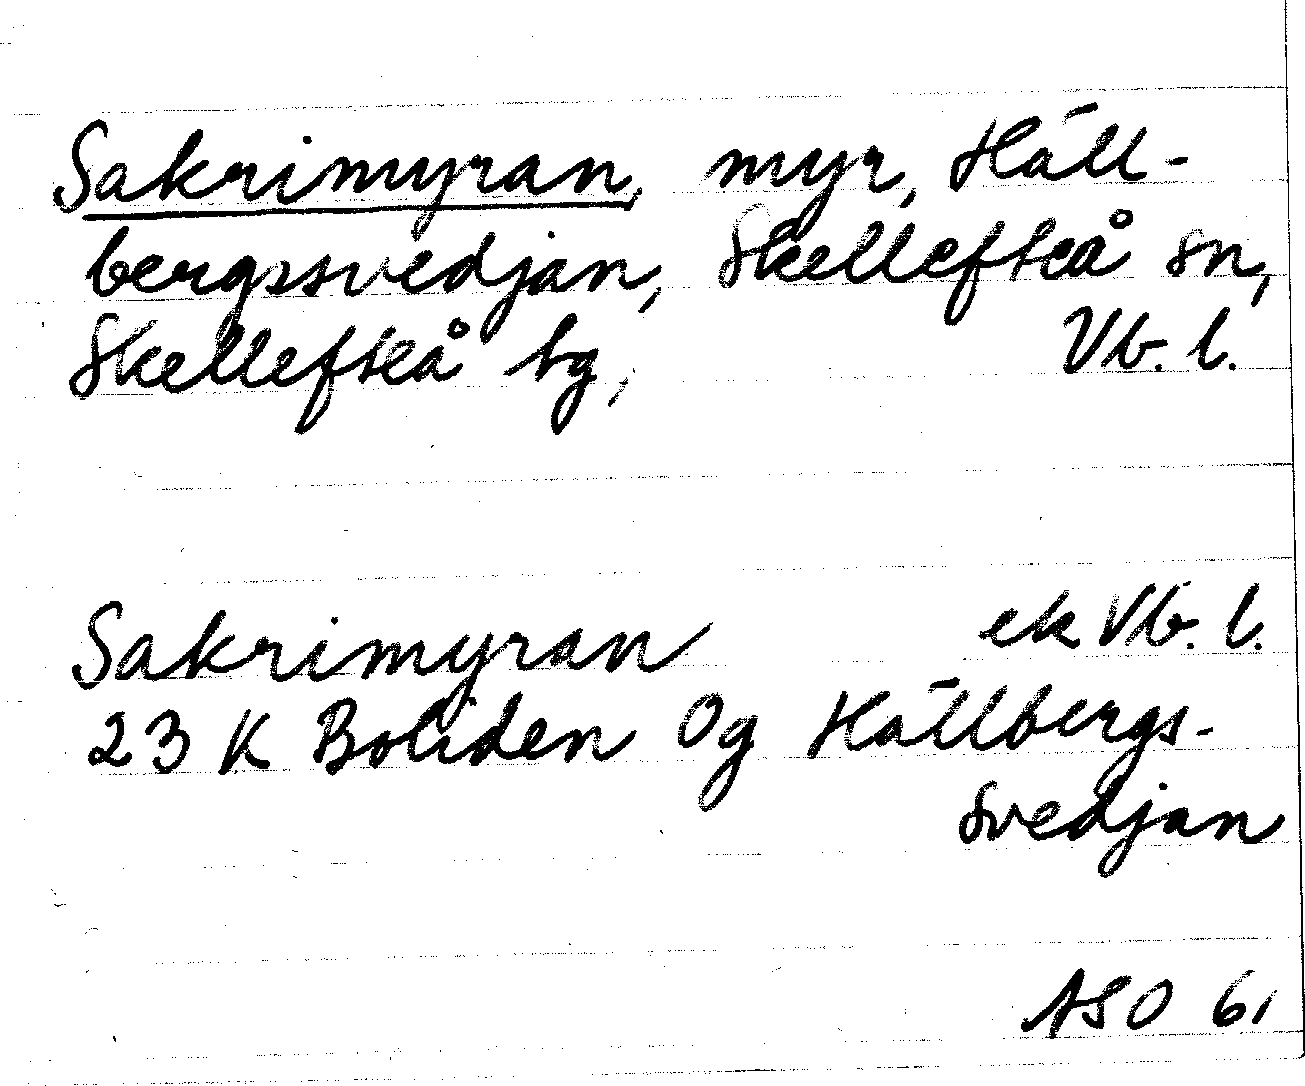 Sakrimyran, myr, Häll-
bergssvedjan, Skellefteå sn,
Skellefteå bg, Vb. l.
Sakrimyran ek Vb. l.
23 K Boliden Og Hällbergs-
svedjan
ASO 61